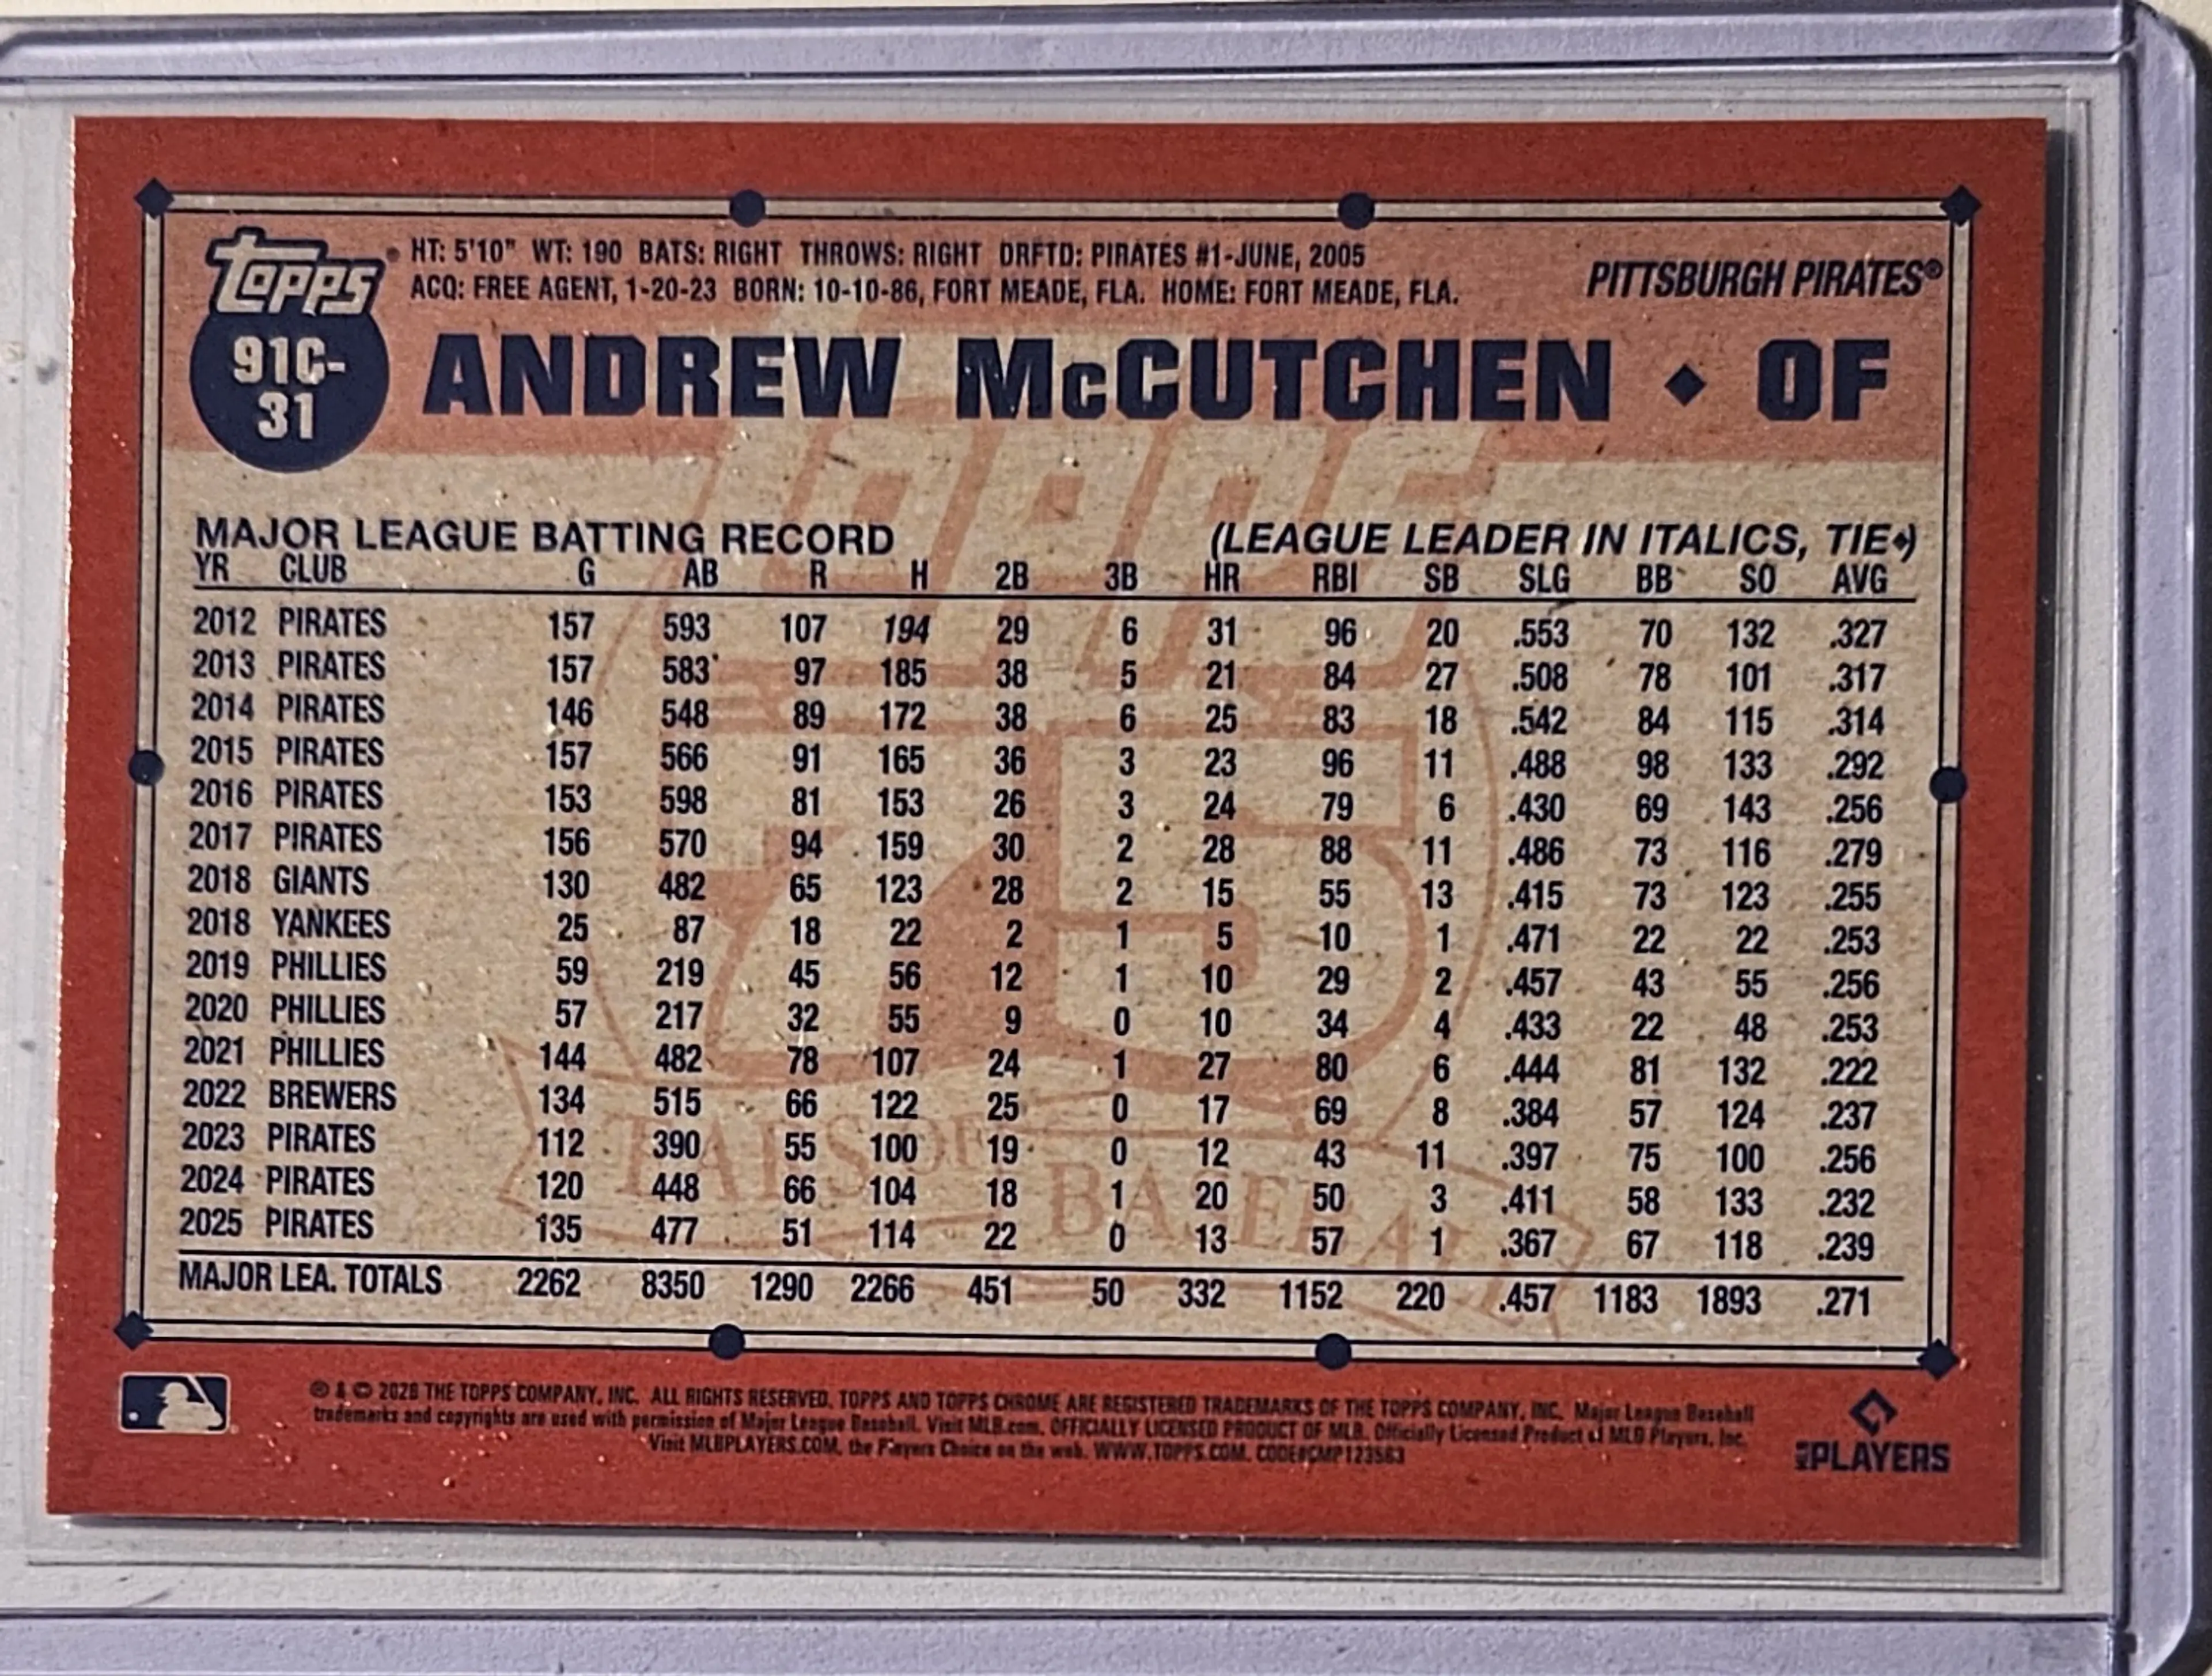 Topps ® HT: 5'10" WT: 190 BATS: RIGHT THROWS: RIGHT DRFTD: PIRATES #1-JUNE, 2005
ACQ: FREE AGENT, 1-20-23 BORN: 10-10-86, FORT MEADE, FLA. HOME: FORT MEADE, FLA.
PITTSBURGH PIRATES®
91C-
31
ANDREW McCUTCHEN ♦ OF
MAJOR LEAGUE BATTING RECORD (LEAGUE LEADER IN ITALICS, TIE♦)
YR CLUB G AB R H 2B 3B HR RBI SB SLG BB SO AVG
2012 PIRATES 157 593 107 194 29 6 31 96 20 .553 70 132 .327
2013 PIRATES 157 583 97 185 38 5 21 84 27 .508 78 101 .317
2014 PIRATES 146 548 89 172 38 6 25 83 18 .542 84 115 .314
2015 PIRATES 157 566 91 165 36 3 23 96 11 .488 98 133 .292
2016 PIRATES 153 598 81 153 26 3 24 79 6 .430 69 143 .256
2017 PIRATES 156 570 94 159 30 2 28 88 11 .486 73 116 .279
2018 GIANTS 130 482 65 123 28 2 15 55 13 .415 73 123 .255
2018 YANKEES 25 87 18 22 2 1 5 10 1 .471 22 22 .253
2019 PHILLIES 59 219 45 56 12 1 10 29 2 .457 43 55 .256
2020 PHILLIES 57 217 32 55 9 0 10 34 4 .433 22 48 .253
2021 PHILLIES 144 482 78 107 24 1 27 80 6 .444 81 132 .222
2022 BREWERS 134 515 66 122 25 0 17 69 8 .384 57 124 .237
2023 PIRATES 112 390 55 100 19 0 12 43 11 .397 75 100 .256
2024 PIRATES 120 448 66 104 18 1 20 50 3 .411 58 133 .232
2025 PIRATES 135 477 51 114 22 0 13 57 1 .367 67 118 .239
MAJOR LEA. TOTALS 2262 8350 1290 2266 451 50 332 1152 220 .457 1183 1893 .271
® & © 2026 THE TOPPS COMPANY, INC. ALL RIGHTS RESERVED. TOPPS AND TOPPS CHROME ARE REGISTERED TRADEMARKS OF THE TOPPS COMPANY, INC. Major League Baseball
trademarks and copyrights are used with permission of Major League Baseball. Visit MLB.com. OFFICIALLY LICENSED PRODUCT OF MLB. Officially Licensed Product of MLB Players, Inc.
Visit MLBPLAYERS.COM, the Players Choice on the web. WWW.TOPPS.COM. CODE#CMP123563
MLB PLAYERS